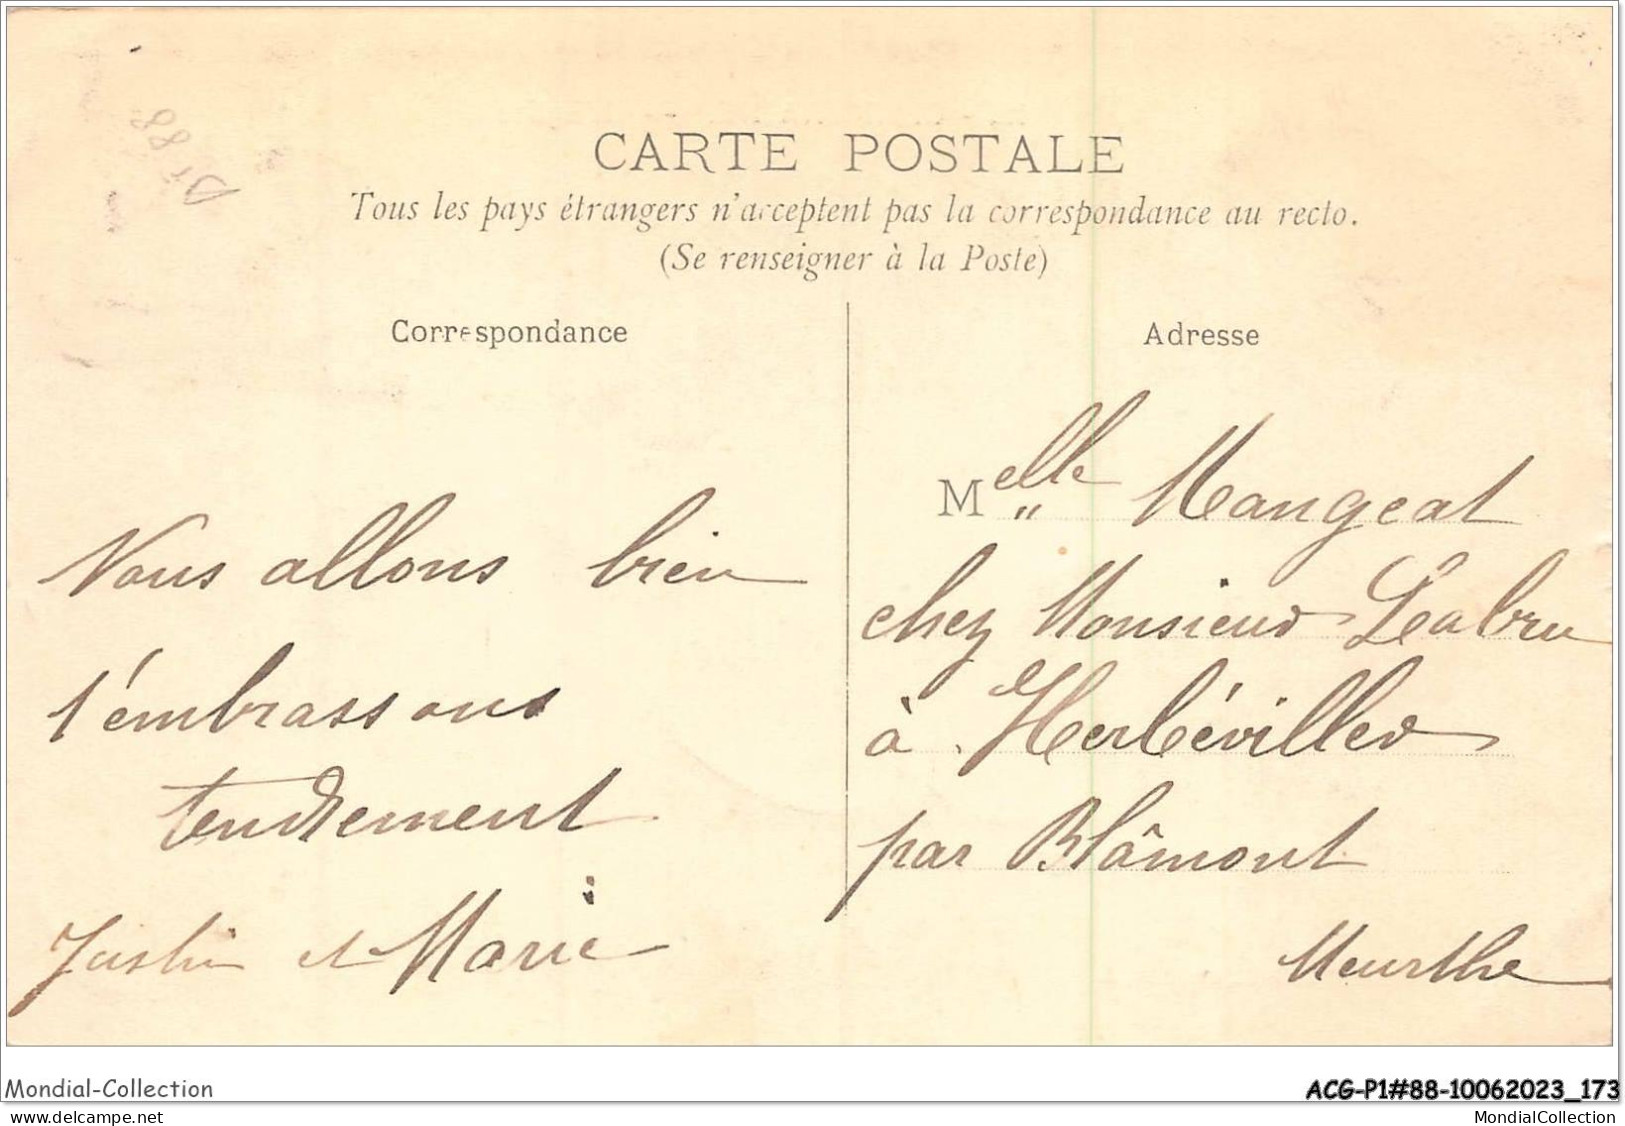 Dt 88
CARTE POSTALE
Tous les pays étrangers n'acceptent pas la correspondance au recto.
(Se renseigner à la Poste)
Correspondance
Nous allons bien
t'embrassons
tendrement
Justin et Marie
Adresse
Melle Mangeat
chez Monsieur Leabru
à Herbéviller
par Blâmont
Meurthe
Mondial-Collection
ACG-P1#88-10062023_173
www.delcampe.net
MondialCollection